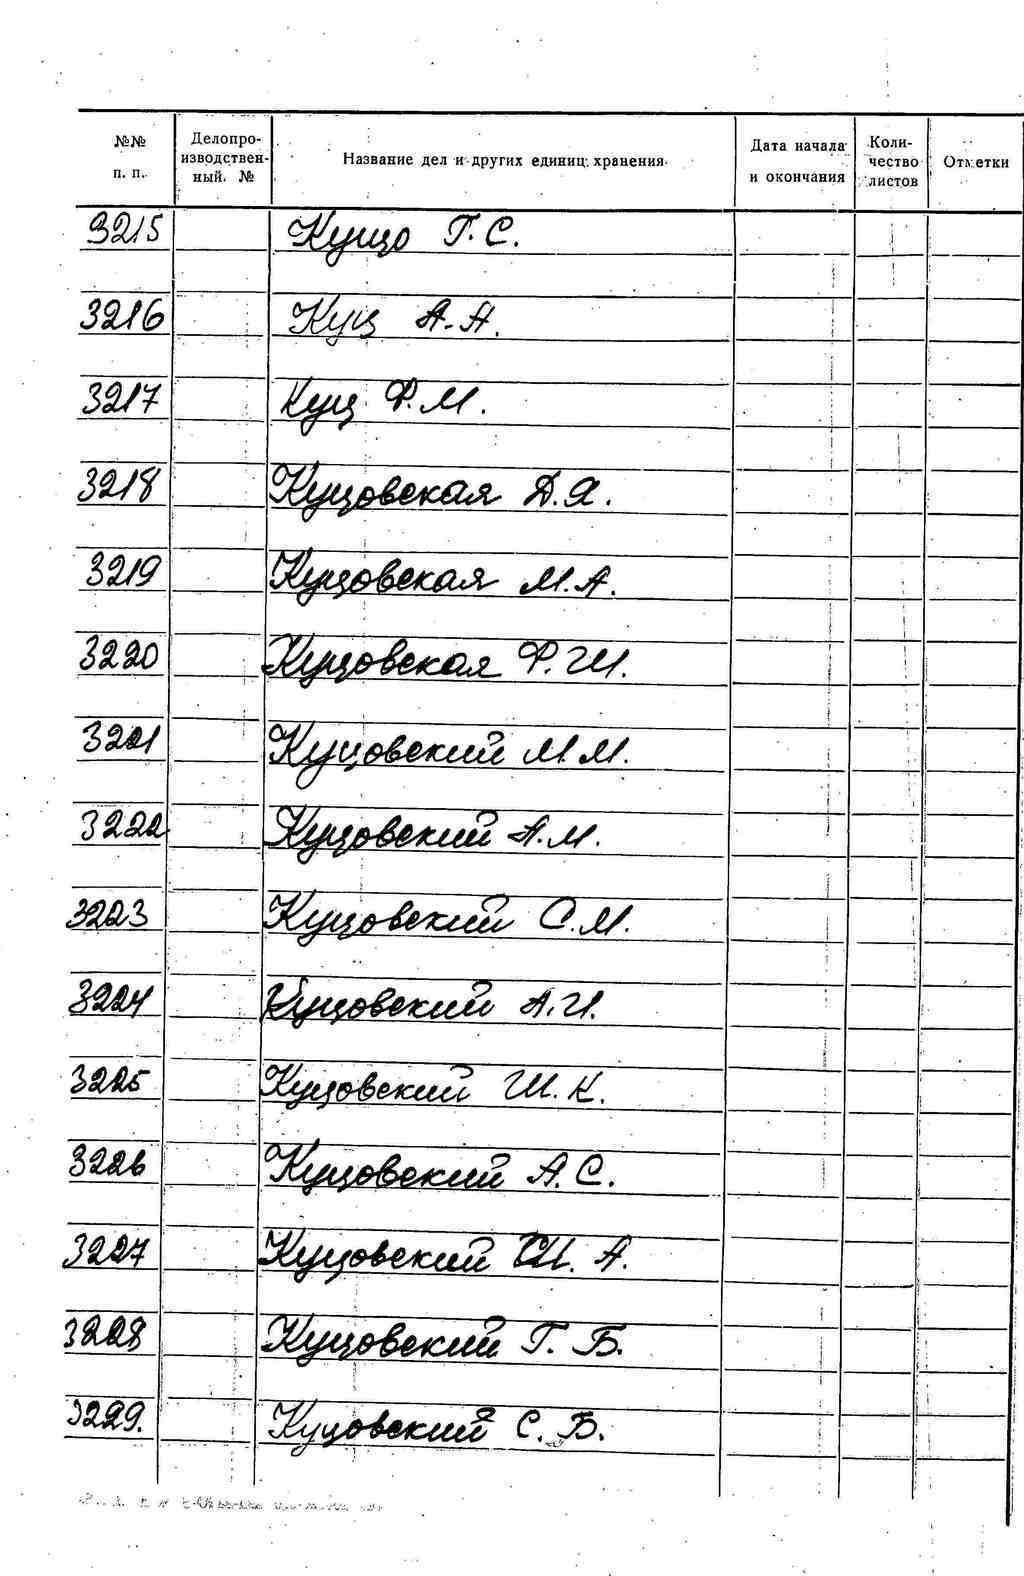 №№ п. п.
Делопро-
изводствен-
ный №
Название дел и других единиц хранения
Дата начала
и окончания
Коли-
чество
листов
Отметки
3215 Кущо Г. С.
3216 Кущ А. А.
3217 Кущ Ф. М.
3218 Куцовская Д. Я.
3219 Куцовская М. А.
3220 Куцовская Ф. Ш.
3221 Куцовский М. М.
3222 Куцовский А. М.
3223 Куцовский С. М.
3224 Куцовский А. И.
3225 Куцовский Ш. К.
3226 Куцовский А. С.
3227 Куцовский А.
3228 Куцовский Г. Б.
3229. Куцовский С. Б.